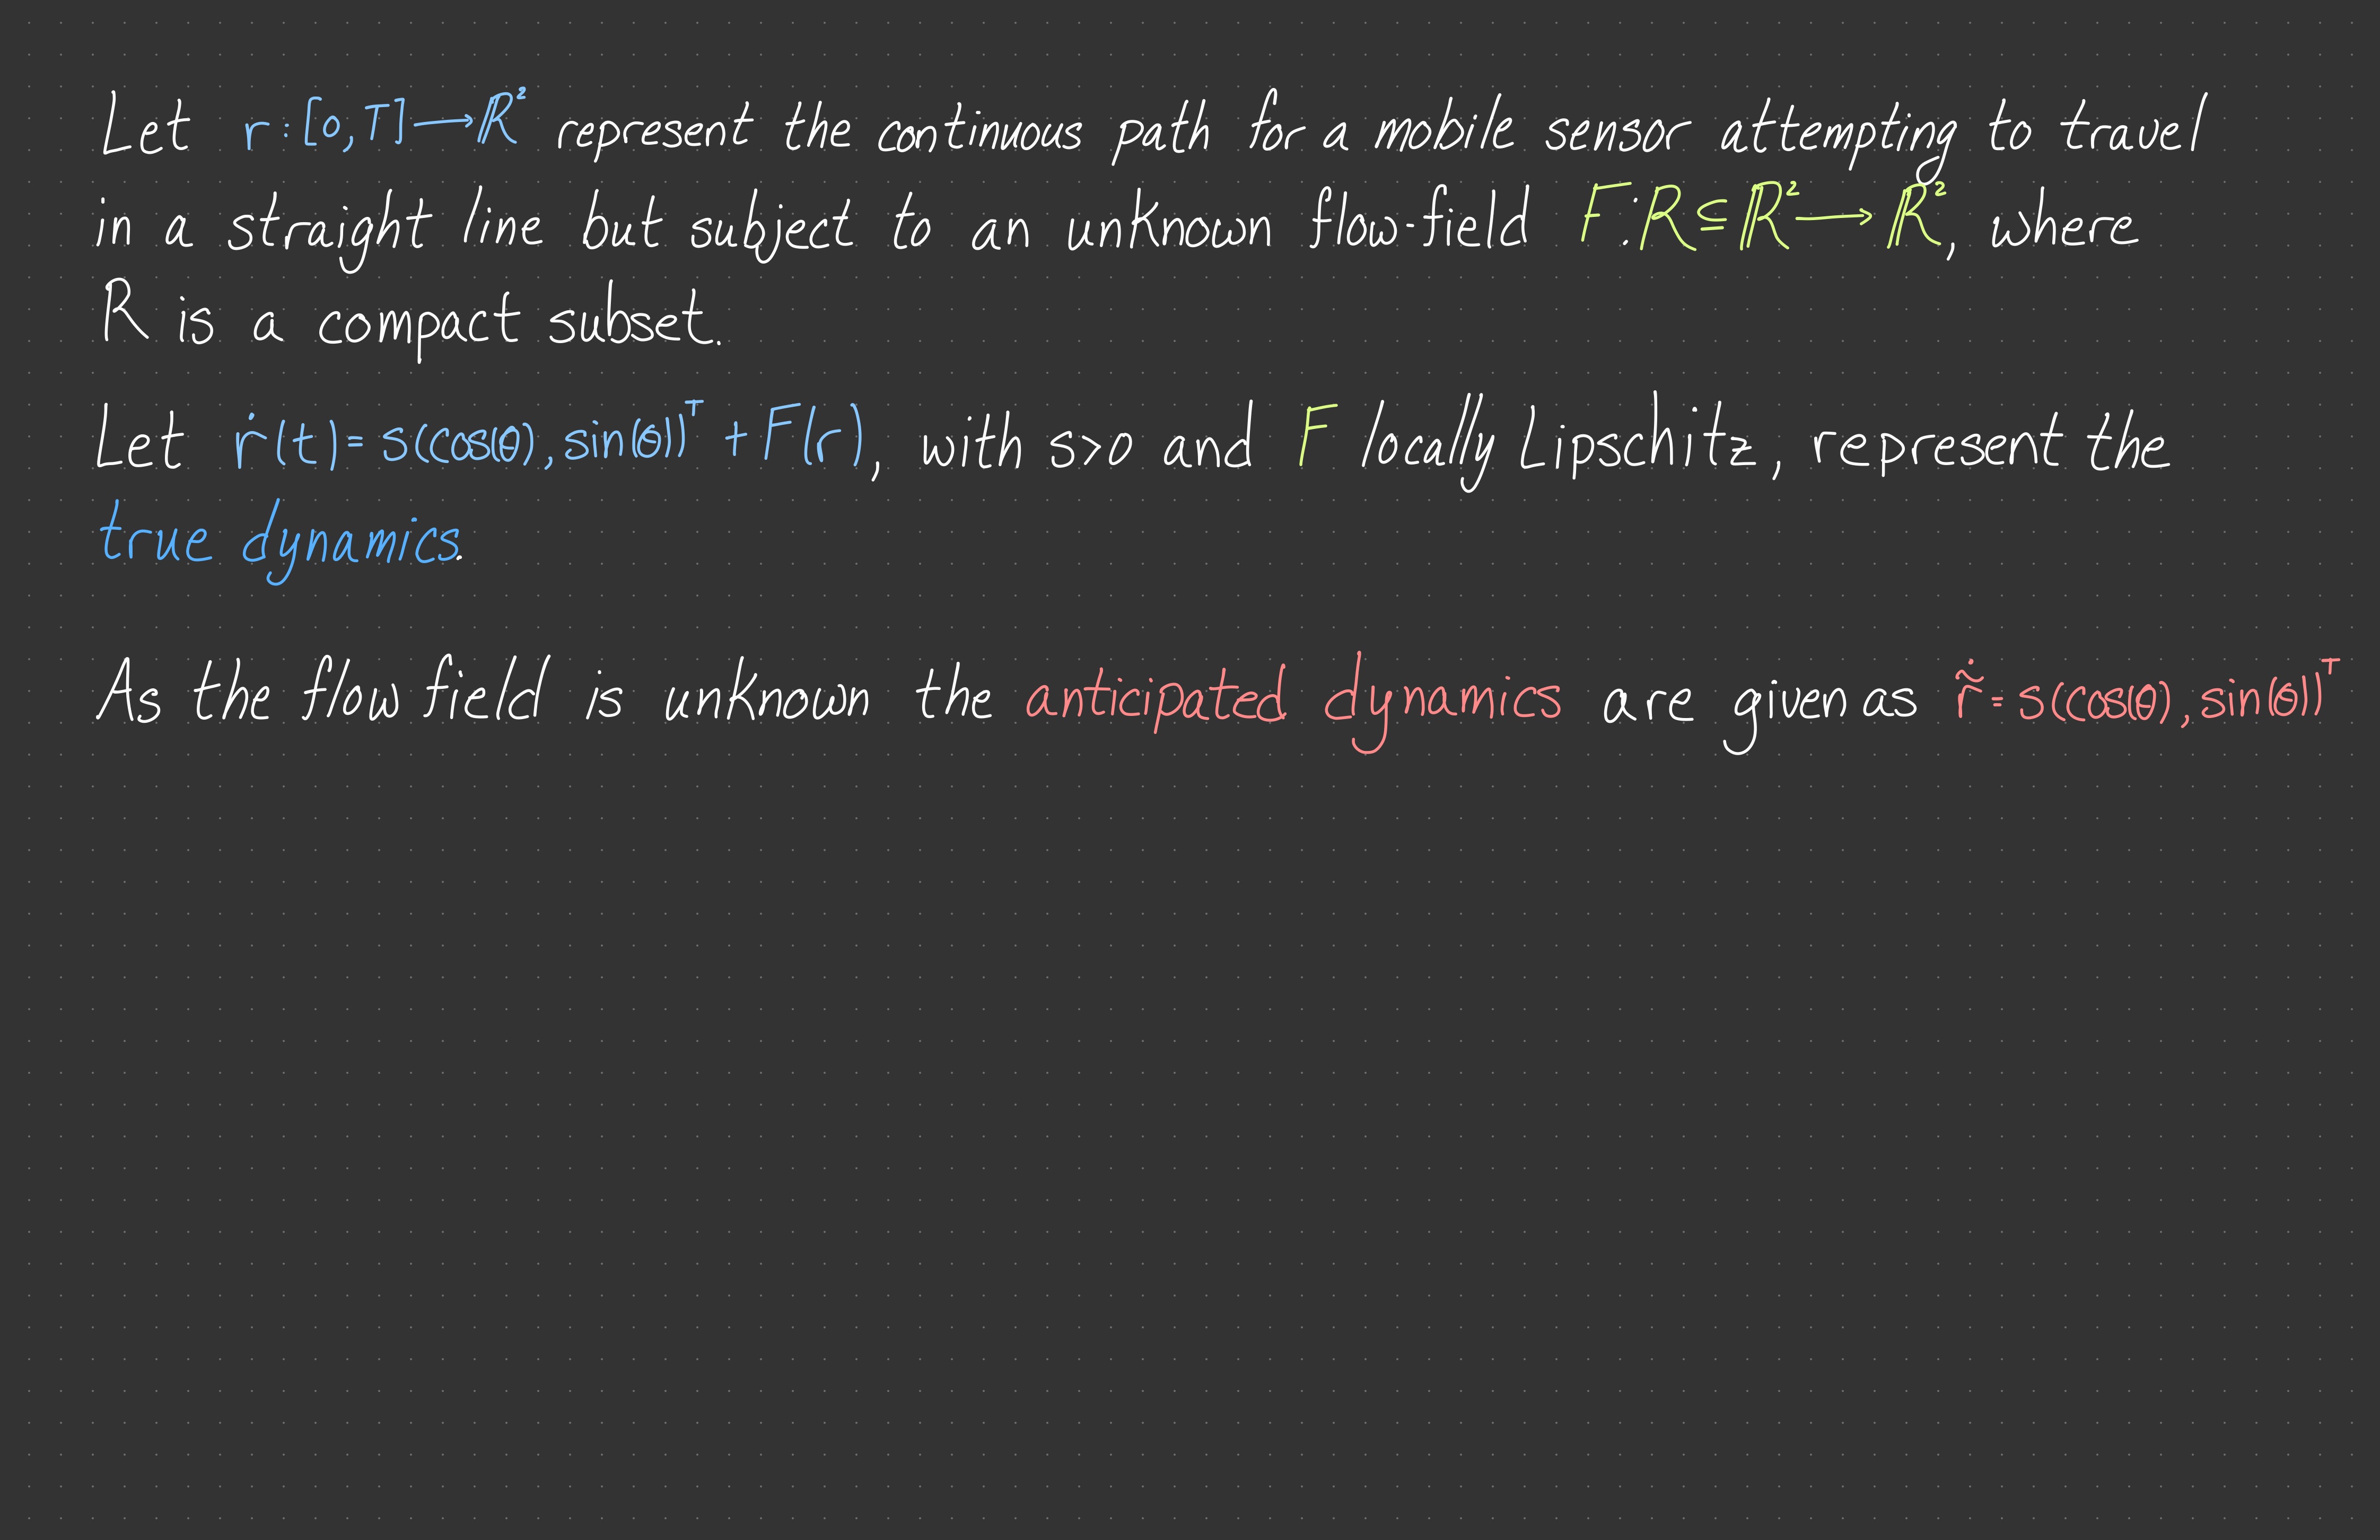 Let r:[0,T]⟶ℝ² represent the continuous path for a mobile sensor attempting to travel
in a straight line but subject to an unknown flow-field F:R⊆ℝ²⟶ℝ², where
R is a compact subset.
Let ṙ(t)=s(cos(θ),sin(θ))ᵀ+F(r), with s>0 and F locally Lipschitz, represent the
true dynamics.
As the flow field is unknown the anticipated dynamics are given as r̃̇=s(cos(θ),sin(θ))ᵀ